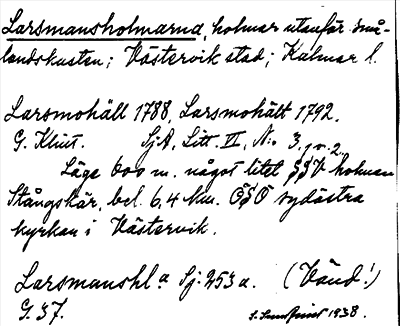 Larsmansholmarna, holmar utanför små-
landskusten; Västervik stad; Kalmar l.
Larsmohäll 1788, Larsmohält 1792.
G. Klint. SjA, Litt. VI, No 3, 1 o. 2.
Läge 600 m. något litet SSV holmen
Stångskär, bel. 6,4 km. OSO sydöstra
kyrkan i Västervik.
Larsmanshl.a Sj: 253 a. (Vänd!)
G. 37.
1938.